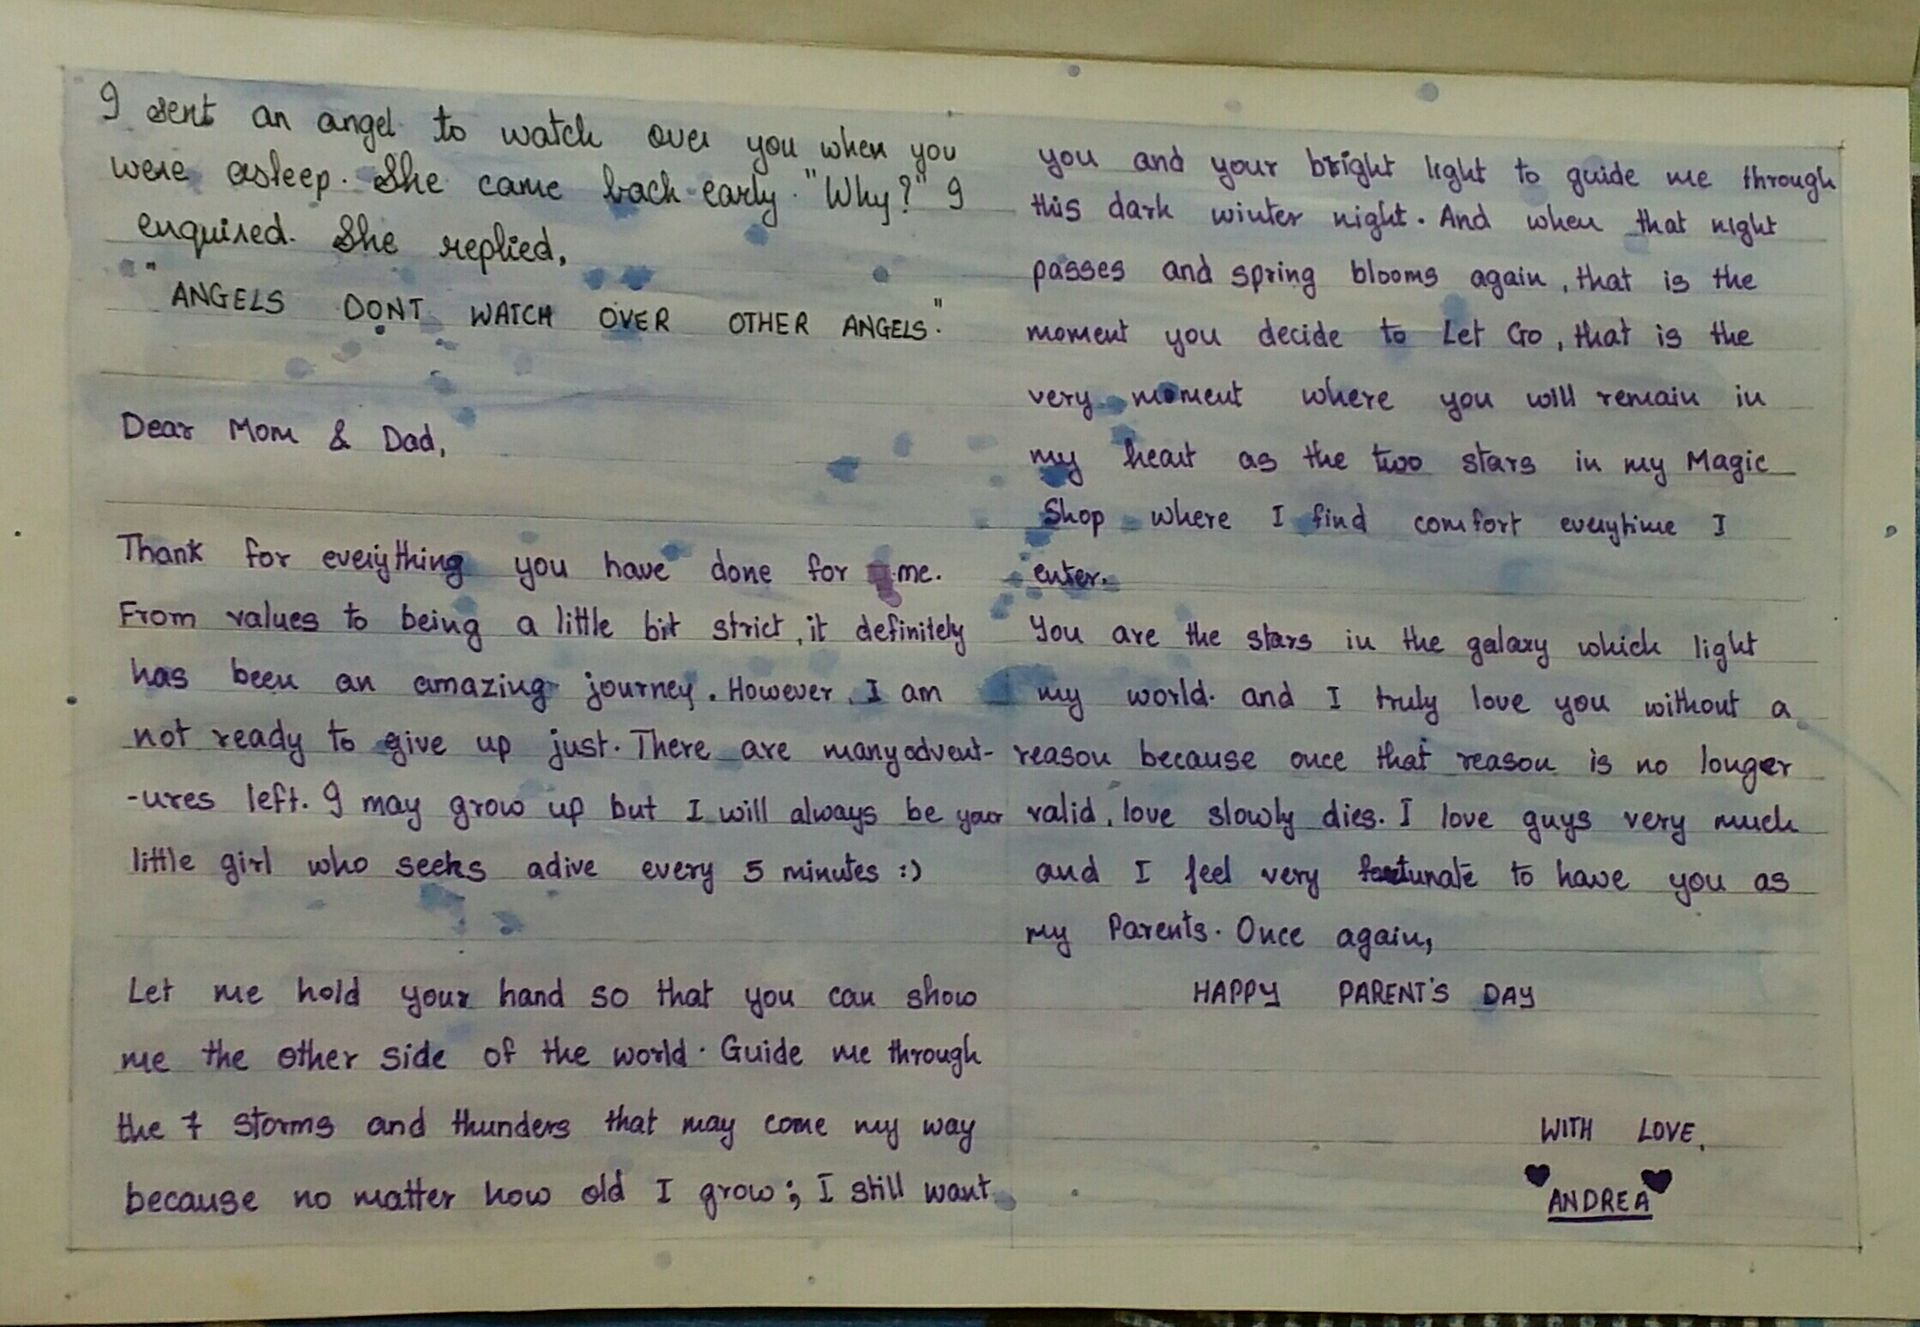 I sent an angel to watch over you when you
were asleep. She came back early. "Why?" I
enquired. She replied,
"ANGELS DONT WATCH OVER OTHER ANGELS."
Dear Mom & Dad,
Thank for everything you have done for me.
From values to being a little bit strict, it definitely
has been an amazing journey. However, I am
not ready to give up just. There are many advent-
-ures left. I may grow up but I will always be your
little girl who seeks adive every 5 minutes :)
Let me hold your hand so that you can show
me the other side of the world. Guide me through
the 7 storms and thunders that may come my way
because no matter how old I grow; I still want
you and your bright light to guide me through
this dark winter night. And when that night
passes and spring blooms again, that is the
moment you decide to Let Go, that is the
very moment where you will remain in
my heart as the two stars in my Magic
Shop where I find comfort everytime I
enter.
You are the stars in the galaxy which light
my world. and I truly love you without a
reason because once that reason is no longer
valid, love slowly dies. I love guys very much
and I feel very fortunate to have you as
my Parents. Once again,
HAPPY PARENT'S DAY
WITH LOVE,
ANDREA